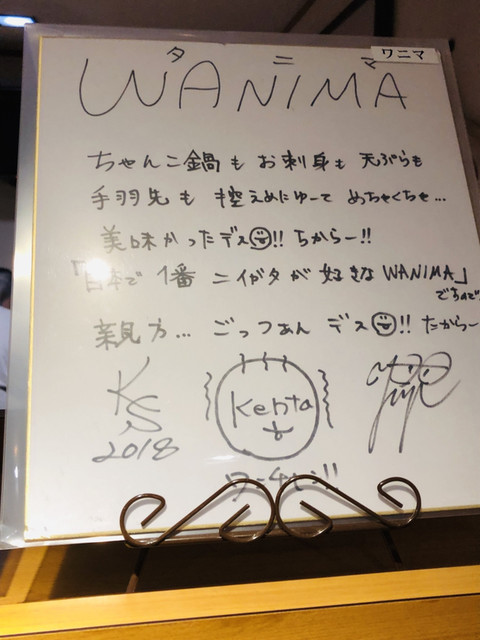 ワニマ
タニマ
WANIMA
ちゃんこ鍋も お刺身も 天ぷらも
手羽先も 控えめにゆーて めちゃくちゃ…
美味かったデス!! ちからー!!
「日本で 1番 ニイガタが 好きなWANIMA」
親方… ごっつぁん デス!! だからー
KS
2018
Kenta